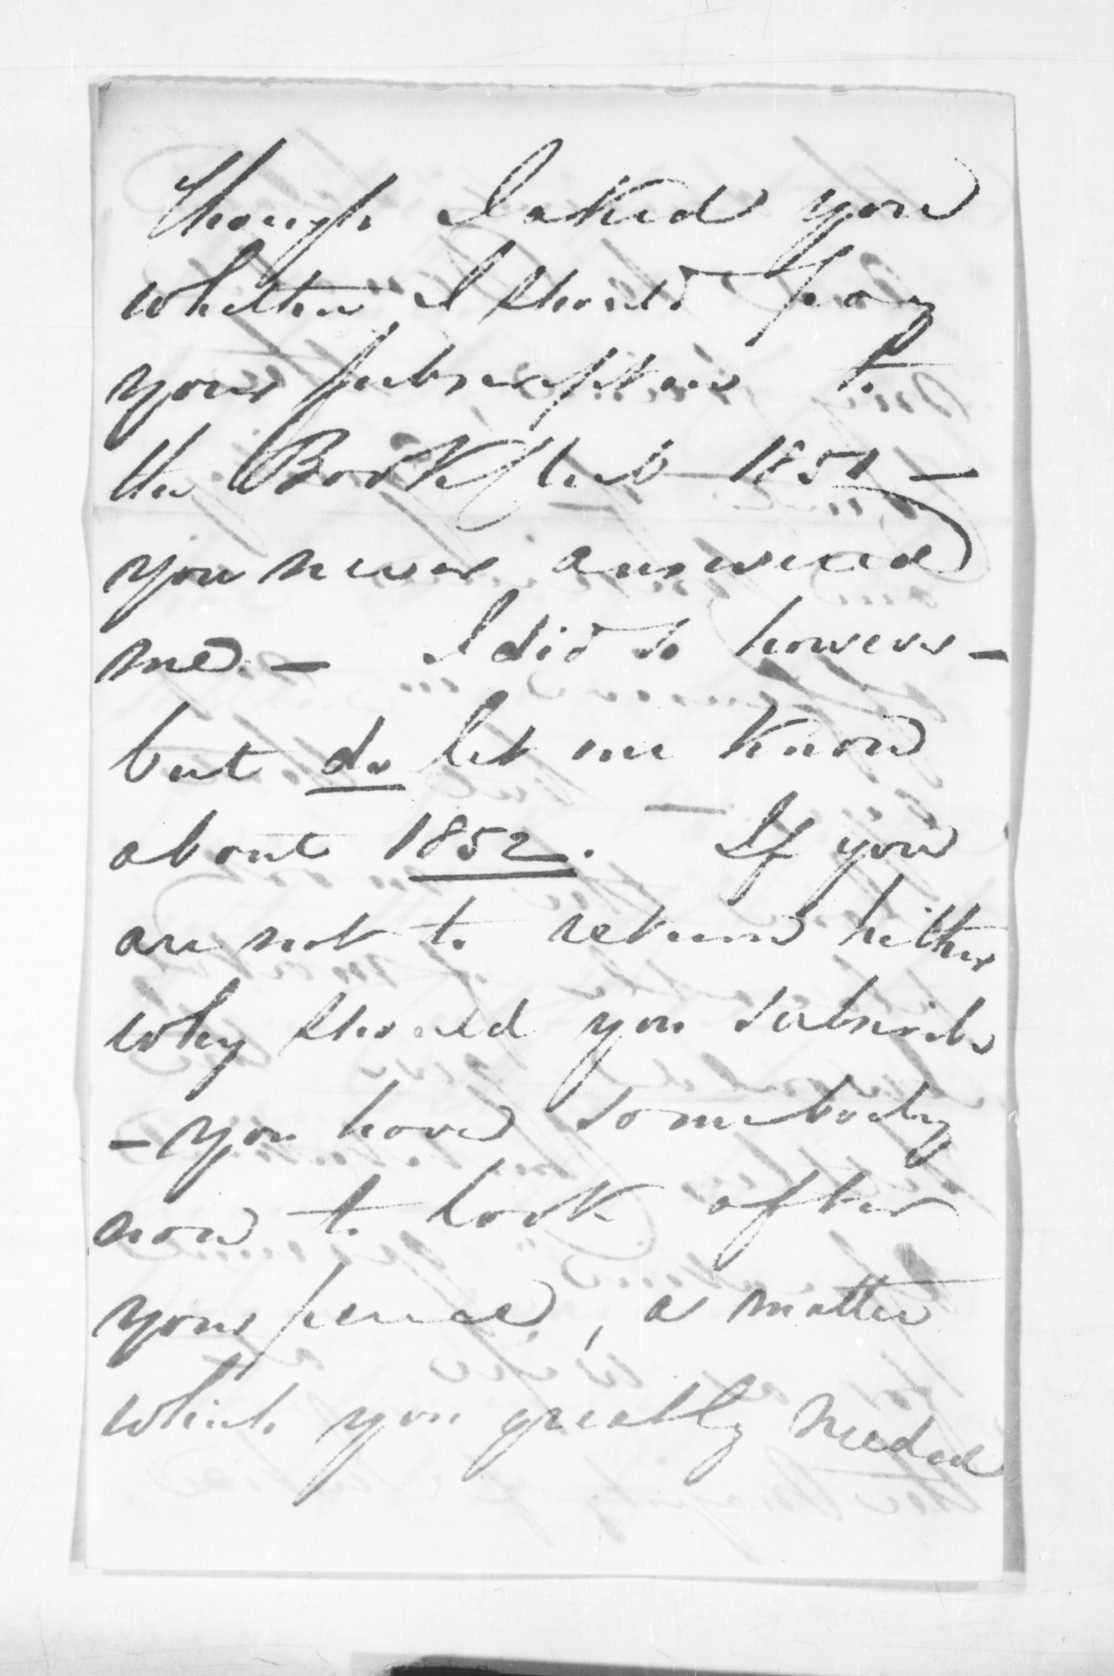 though I asked you
whether I should pay
your subscription to
the Book Club 1851 -
you never answered
me - I did so however -
but do let me know
about 1852. - If you
are not to return hither
why should you subscribe
- you have somebody
now to look after
your pence, a matter
which you greatly needed